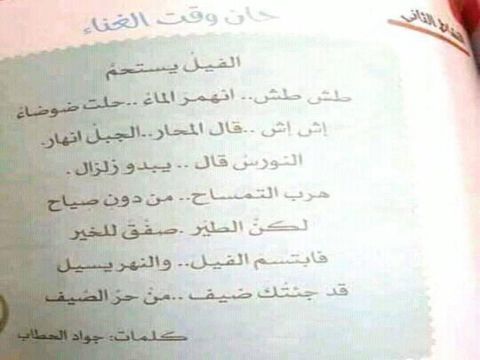 حان وقت الغناء
النشاط الثاني
الفيلُ يستحمُ
طش طش.. انهمرَ الماءُ ..حلت ضوضاءُ
إش إش ..قال المحار..الجبلُ انهار.
النورسُ قال .. يبدو زلزال.
هرب التمساح.. من دونِ صياح
لكنّ الطيْر .صفّقَ للخير
فابتسم الفيل.. والنهر يسيل
قد جئتُك ضيف ..منْ حرّ الصّيف
كلمات: جواد الحطاب